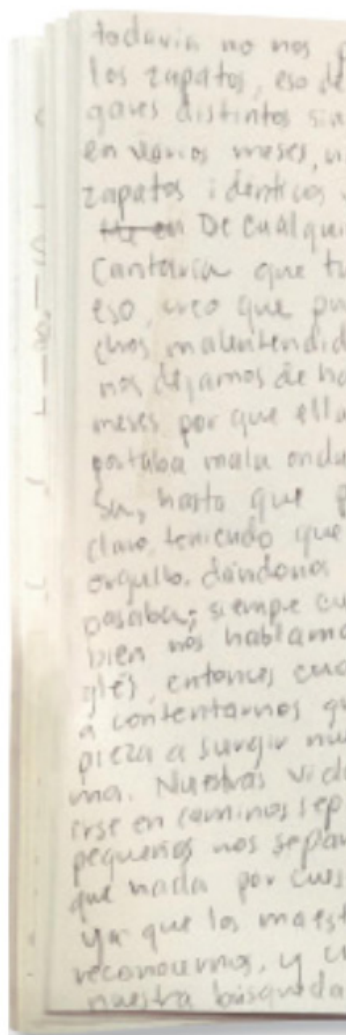 todavía no nos p
los zapatos, eso de
gares distintos sin
en varios meses, u
zapatos idénticos
De cualqui
cantaría que tu
eso, creo que pu
chos malentendid
nos dejamos de ha
meses por que ella
portaba mala onda
sa, hasta que p
clavo, teniendo que
orgullo. dándonos
pasaba; siempre cu
bien nos hablamo
glés, entonces cua
a contentarnos qu
pieza a surgir nu
ma. Nuestras vida
irse en caminos sep
pequeñas nos separ
que nada por cues
ya que los maest
reconocernos, y u
nuestra búsqueda